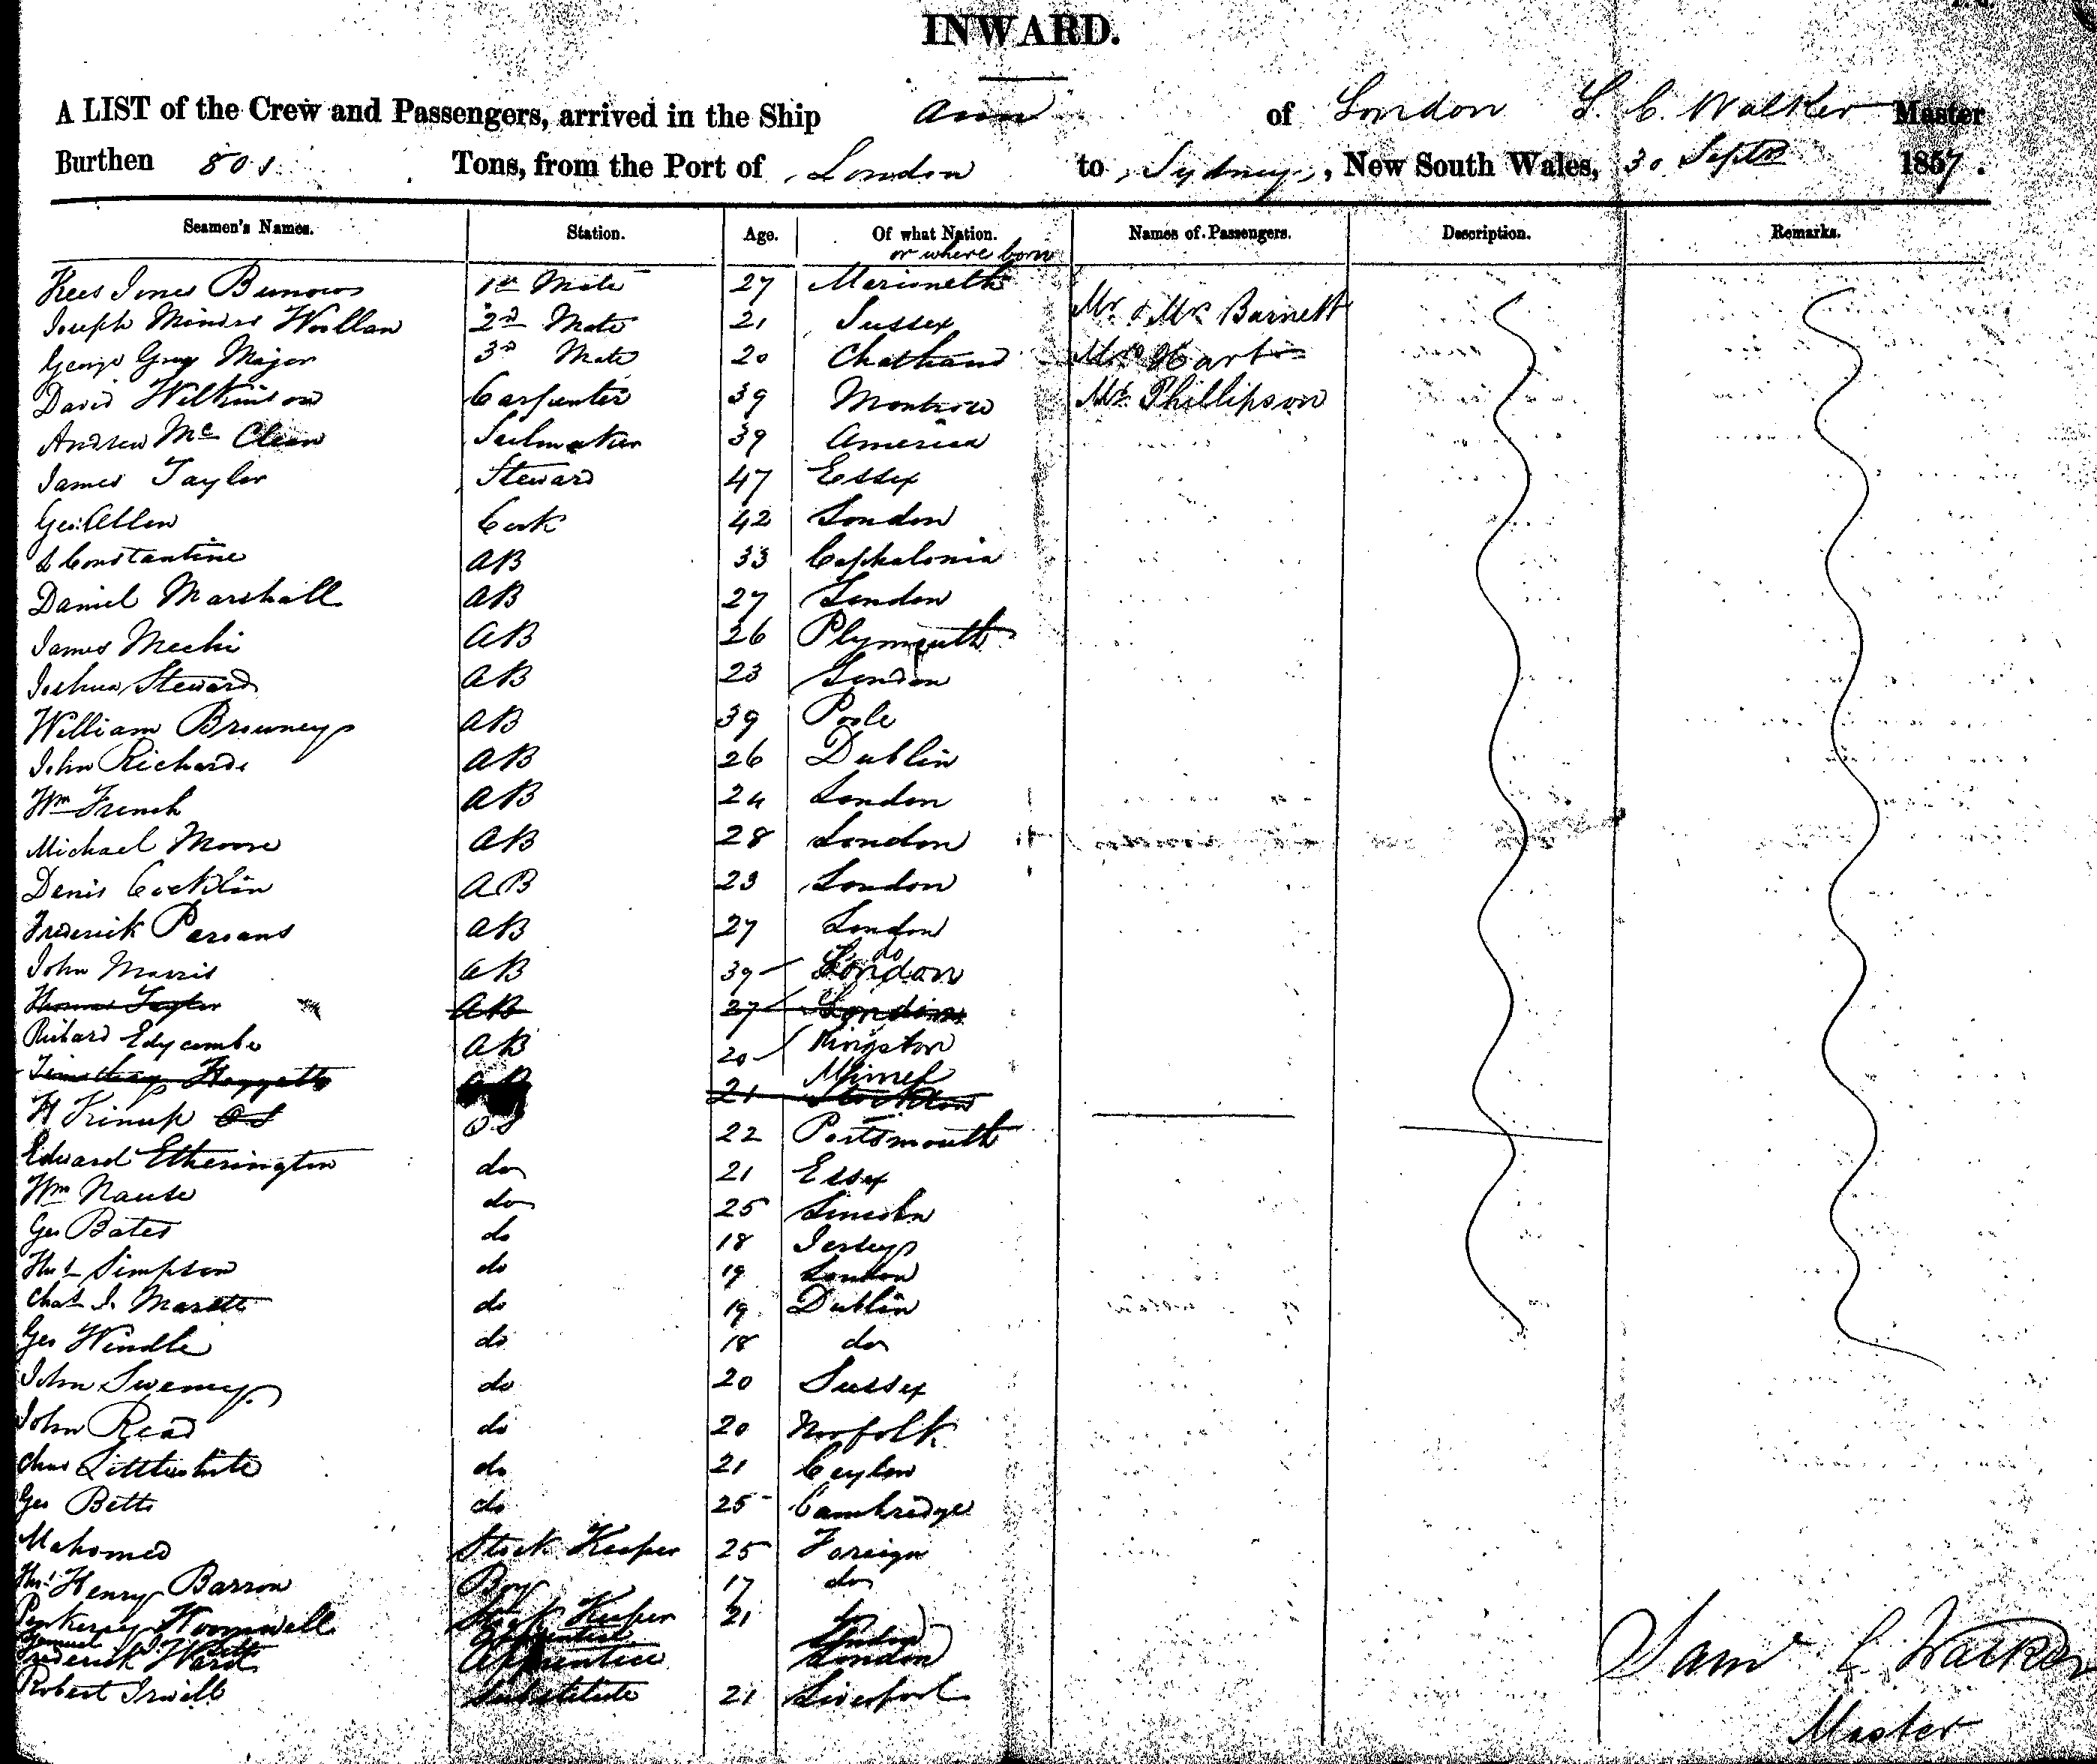 INWARD.
A LIST of the Crew and Passengers, arrived in the Ship Ann of London S. C. Walker Master
Burthen 801 Tons, from the Port of London to Sydney, New South Wales, 30 Septr 1857.
Seamen's Names. Station. Age. Of what Nation. Names of Passengers. Description. Remarks.
or where born
Rees Jones 1st Mate 27 Merioneth
Joseph Woollan 2nd Mate 21 Sussex Mr & Mrs Barnett
George Grey Major 3rd Mate 20 Chatham Mrs Hart
David Wilkinson Carpenter 39 Montrose Mr Phillipson
Andrew Mc Clean Sailmaker 39 America
James Taylor Steward 47 Essex
Geo: Allen Cook 42 London
Constantine AB 33 Cephalonia
Daniel Marshall AB 27 London
James Mechi AB 26 Plymouth
Joshua Steward AB 23 London
William Browney AB 39 Poole
John Richards AB 26 Dublin
Wm French AB 24 London
Michael Moore AB 28 London
Denis Cocklin AB 23 London
Frederick Parsons AB 27 London
do
John Morris AB 39 London
Thomas Taylor AB 27 London
Richard Edgcombe AB 20 Kingston
Timothy AB 21 Stockton
H OS OS 22 Portsmouth
Edward Etherington do 21 Essex
Wm do 25 Lincoln
Geo Bates do 18 Jersey
Thos Simpson do 19 London
Chas J. do 19 Dublin
Geo Windle do 18 do
John Sweeney do 20 Sussex
John Read do 20 Norfolk
Chas do 21 Ceylon
Geo Betts do 25 Cambridge
Mahomed Stock Keeper 25 Foreign
Thos Henry Barron Boy 17 do
Stock Keeper 21 do
Samuel Apprentice London
Frederick Ward Apprentice London
Robert Substitute 21 Liverpool
Saml C. Walker
Master